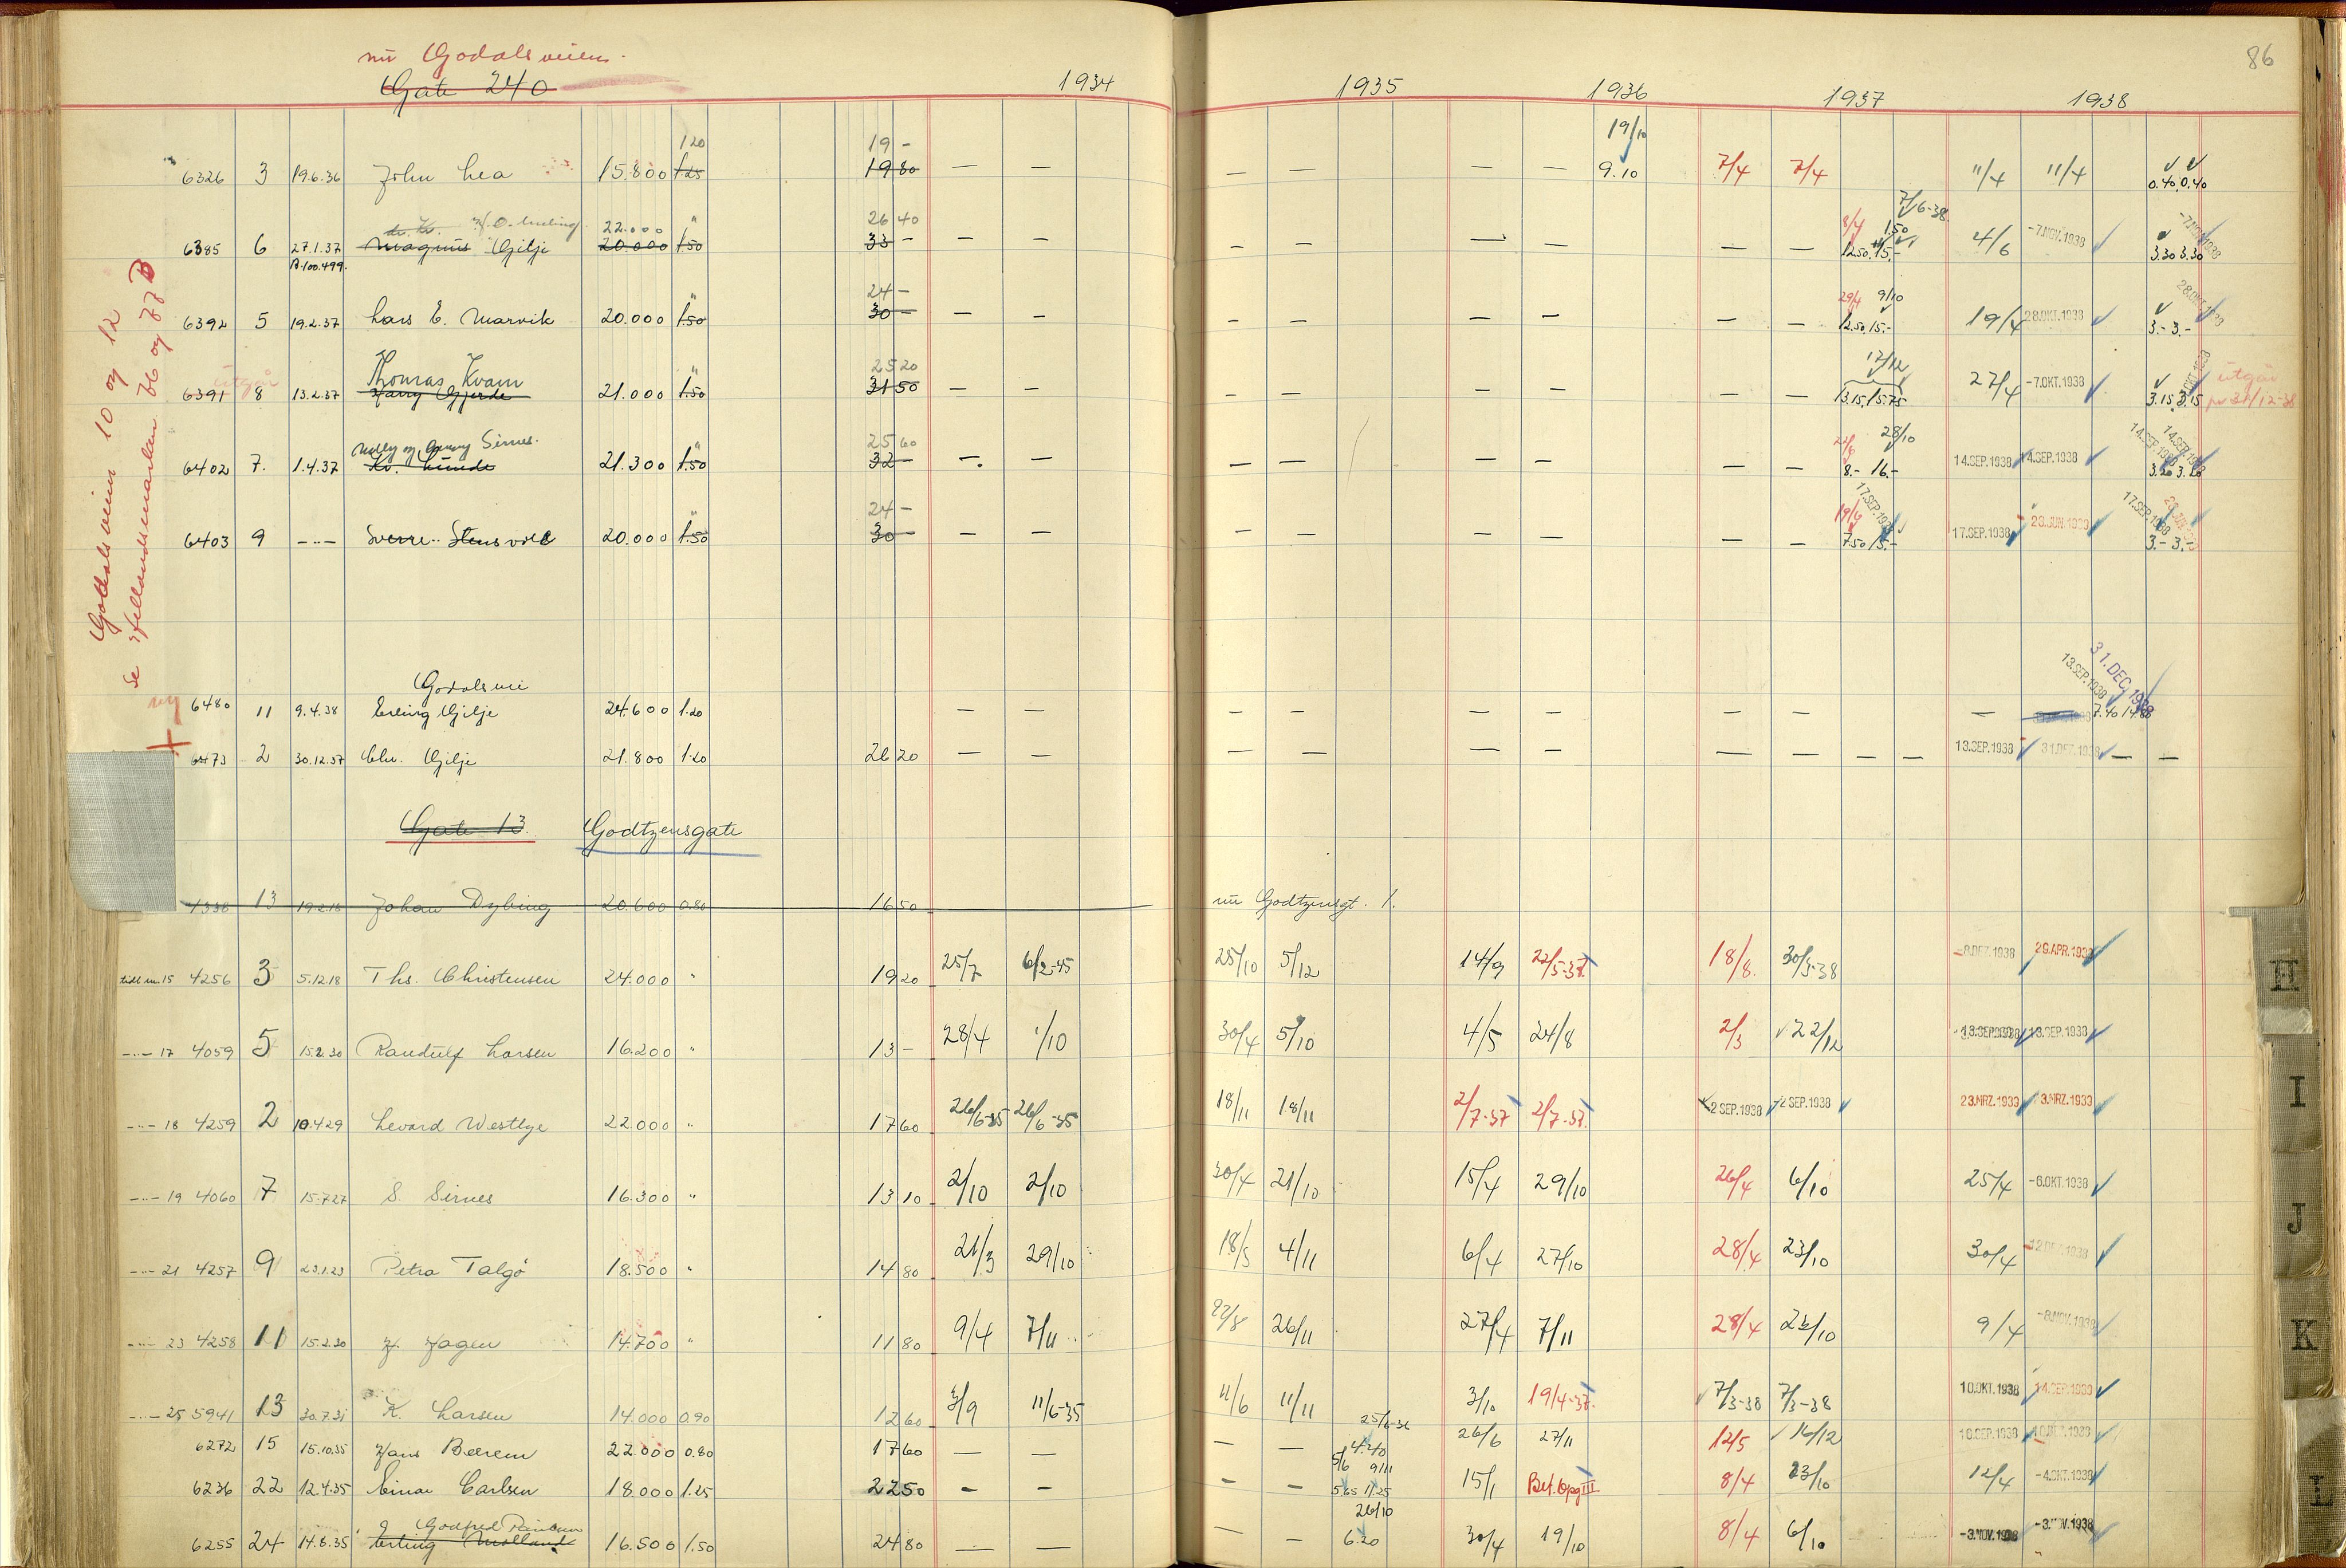 nu Godalsveien.
Gate 240
1934 1935 1936 1937 1938
86
Godalsveien 10 og 12
se Hellandsmarken 76 og 77 B
120 19 - 19/10
6326 3 19.6.36 John Lea 15.800 1.25 19 80 — — — — — — 9.10 7/4 7/4 11/4 11/4 0.40 0.40
O. Meling 22.000 " 26 40 8/4 7/6-38 1.50
6385 6 27.1.37 Magnus Gilje 20.000 1.50 33 - — — — — — — — — 12.50 15.- 4/6 -7.NOV.1938 3.30 3.30
B.100.499.
" 24 - 29/4 9/10 28.OKT.1938
6392 5 19.2.37 Lars E. Marvik 20.000 1.50 30 - — — — — — — — — 12.50 15.- 19/4 28.OKT.1938 3.- 3.-
utgår Thomas Kvam " 25 20 17/12 utgår
6391 8 13.2.37 Harry Gjerde 21.000 1.50 31 50 — — — — — — — — 13.15 15.75 27/4 -7.OKT.1938 3.15 3.15 pr 31/12-38
Sirnes. " 25 60 28/10 14.SEP.1938 14.SEP.1938
6402 7. 1.4.37 Kr. Lunde 21.300 1.50 32 - — — — — — — — — 8.- 16.- 14.SEP.1938 14.SEP.1938 3.20 3.20
" 24 - 19/6 17.SEP.1938 17.SEP.1938
6403 9 -"- Sverre Stensvold 20.000 1.50 30 - — — — — — — — — 7.50 15.- 17.SEP.1938 3.- 3.-
Godalsvei 13.SEP.1938 31.DEC.1938
ny 6480 11 9.4.38 Erling Gilje 24.600 1.20 — — — — — — — — — 7.40
6473 2 30.12.37 Chr. Gilje 21.800 1.20 26 20 — — — — — — — — — — 13.SEP.1938 — —
Gate 13. Godtzensgate
1338 13 19.2.18 Johan Dybing 20.600 0.80 16 50 nu Godtzensgt. 1.
tidl nr. 15 4256 3 5.12.18 Ths. Christensen 24.000 " 19 20 25/7 6/2-45 25/10 5/12 14/9 22/5-37. 18/8. 30/3-38 26.APR.1939
-"- 17 4059 5 15.2.30 Randulf Larsen 16.200 " 13 - 28/4 1/10 30/4 5/10 4/5 24/8 2/3 22/12 13.SEP.1938 13.SEP.1938
-"- 18 4259 2 10.4.29 Levard Westlye 22.000 " 17 60 26/6-35 26/6-35 18/11 18/11 2/7-37 2/7-37. 2 SEP.1938 2 SEP.1938 23.MRZ.1939
-"- 19 4060 7 15.7.27 S. Sirnes 16.300 " 13 10 2/10 2/10 30/4 21/10 15/4 29/10 26/4 6/10 25/4 -6.OKT.1938
-"- 21 4257 9 23.1.23 Petra Talgø 18.500 " 14 80 21/3 29/10 18/5 4/11 6/4 27/10 28/4 23/10 30/4
-"- 23 4258 11 15.2.30 14.700 " 11 80 9/4 7/11 22/8 26/11 27/4 7/11 28/4 9/4 -8.NOV.1938
-"- 25 5941 13 30.7.31 K. Larsen 14.000 0.90 12 60 3/9 11/6-35 11/6 11/11 3/10 19/4-37. 7/3-38 7/3-38 10.OKT.1938
6272 15 15.10.35 Hans Beerem 22.000 0.80 17 60 — — — — 4.40 26/6 27/11 12/5 16/12 10.SEP.1938
5/6 9/11
6236 22 12.4.35 Einar Carlsen 18.000 1.25 22 50 — — — — 5.65 11.25 15/1 Bet. Opg III 8/4 23/10 12/4 -4.OKT.1938
Godfred 26/10
6255 24 14.8.35 Erling Molland 16.500 1.50 24 80 — — — — 6.20 30/4 19/10 8/4 6/10 -3.NOV.1938 -3.NOV.1938
H
I
J
K
L